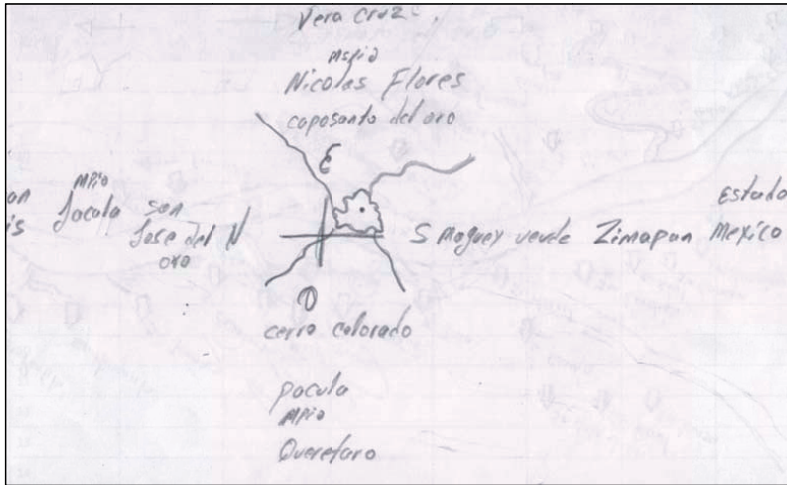 Vera Cruz
Mpio
Nicolas Flores
caposanto del oro
E
Mpio
Jacala
san
Jose del
oro
N
S maguey verde Zimapan
Estado
Mexico
O
cerro colorado
pacula
Mpio
Queretaro